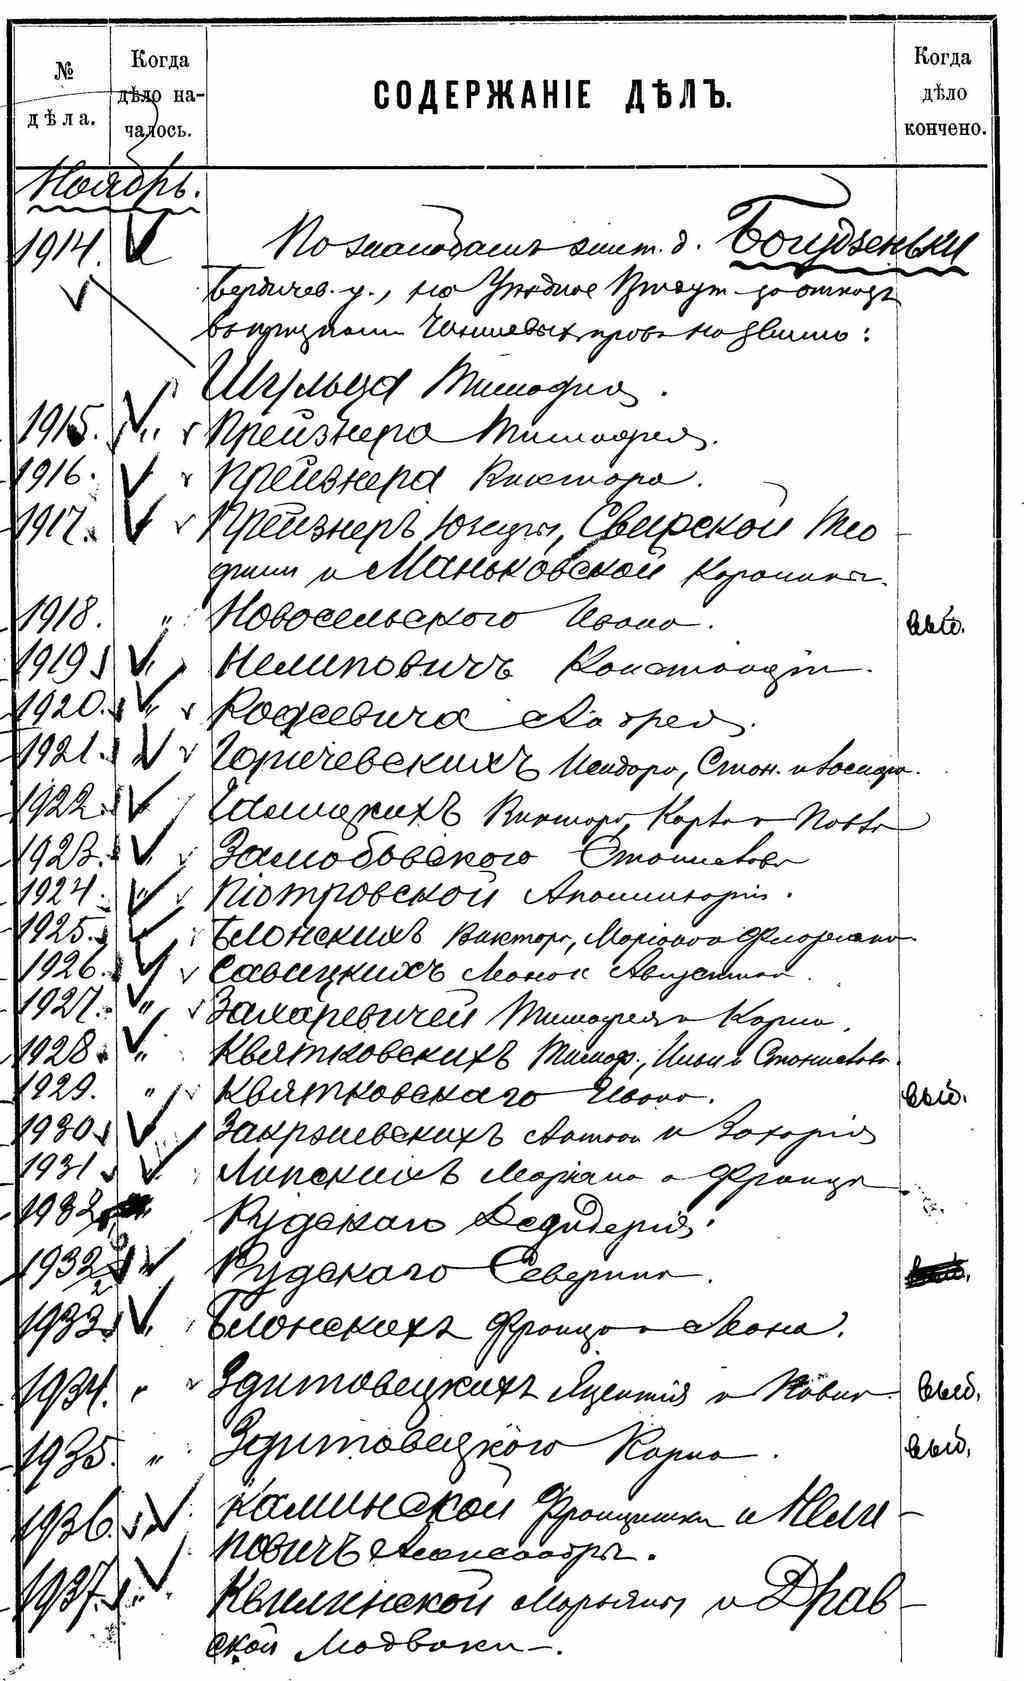 № дѣла.
Когда дѣло началось.
СОДЕРЖАНІЕ ДѢЛЪ.
Когда дѣло кончено.
Ноябрь.
1914. По жалобамъ жит. д. Богудзеньки
Бердичев. у., на Уѣздное
чиншевыхъ правъ на землю:
Шульца Тимофея.
1915. " Прейзнера Тимофея.
1916. Прейзнера Виктора.
1917. Прейзнеръ Юзефы, Свирской Тео-
филии и Маньковской Каролины.
1918. " Новосельского Ивана. выб.
1919 " Нелиповичъ Констанціи.
1920. " Радзевича Андрея.
1921. Горичевскихъ Исидора, Стан. и Іосифа.
1922. Виктора, Карла и Павла
1923. Замобовского Станислава
1924. " Піотровской Аполлинаріи.
1925. Блонскихъ Виктора, Маріана и Флоріана.
1926. Савицкихъ Августина.
1927. " Захаревичей Тимофея и Карла.
1928. " Квятковскихъ Тимоф., Ильи и Станислава.
1929. " Квятковскаго Ивана. выб.
1930. Закржевскихъ Антона и Захарія
1931 Липскихъ Маріана и Франца
1932 Рудскаго Дезидерія.
1932 2 " Рудскаго Северина.
1933. " Блонскихъ Франца и Леона.
1934. " Здитовецкихъ Яцентія и Павла. выб.
1935. " Здитовецкого Карла. выб.
1936. Каминской Францишки и Нели-
повичъ Александры.
1937. " Квилинской Марьяны и Драв-
ской